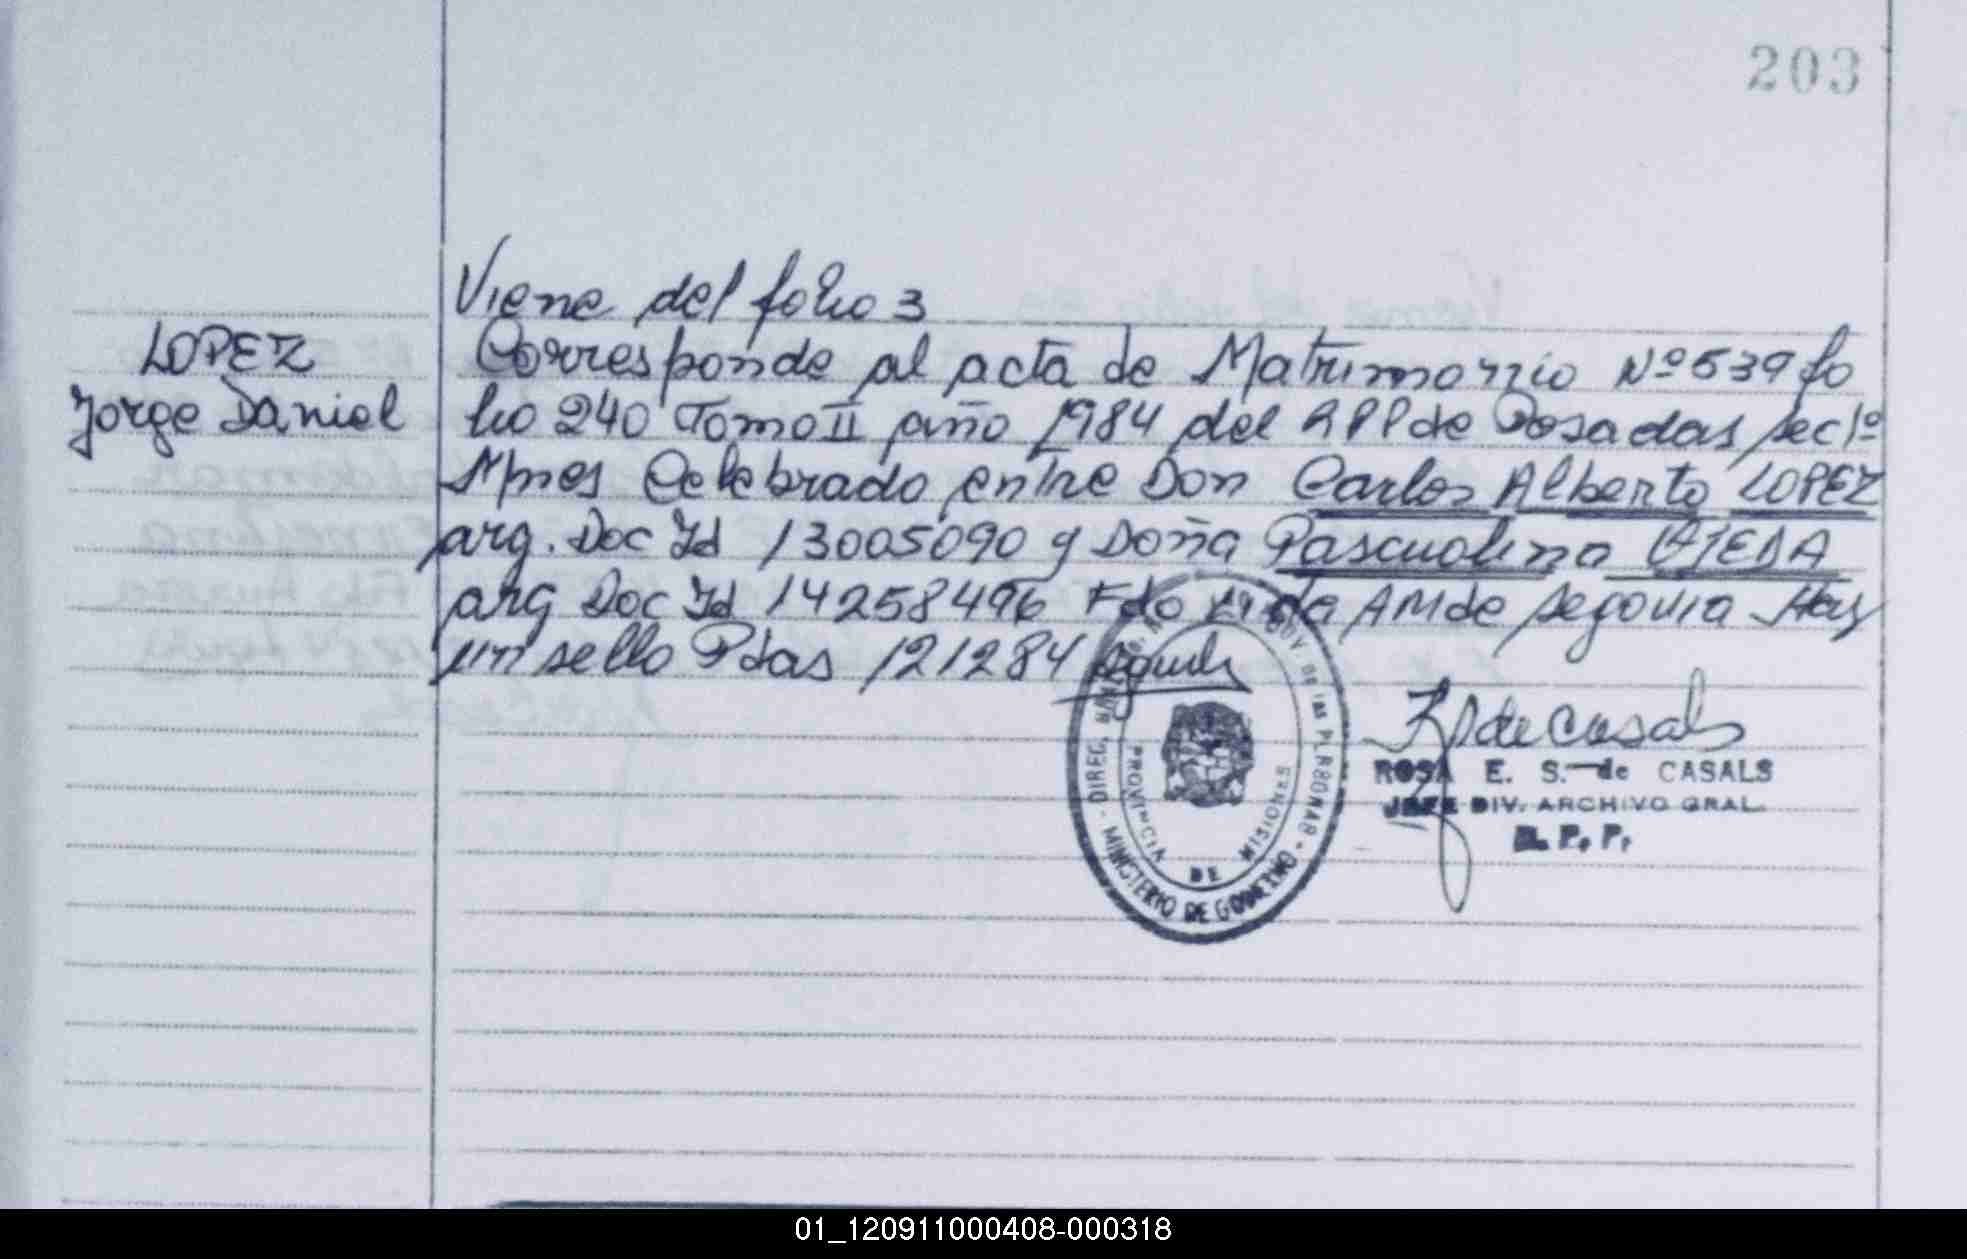 203
Viene del folio 3
LOPEZ
Jorge Daniel
Corresponde al acta de Matrimonio Nº 539 fo
lio 240 Tomo II año 1984 del RPP de Posadas sec 1º
Mnes Celebrado entre Don Carlos Alberto LOPEZ
arg. Doc Id 13005090 y Doña Pascualina OJEDA
arg Doc Id 14258496 Fdo Lida AM de Segovia Hay
un sello Pdas 121284
R S de Casals
ROSA E. S. de CASALS
JEFE DIV. ARCHIVO GRAL.
R. P. P.
PROVINCIA DE MISIONES
MINISTERIO DE GOBIERNO
01_120911000408-000318